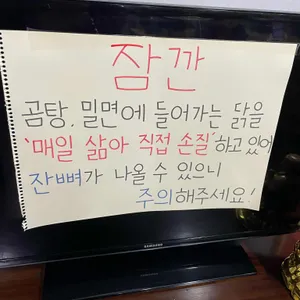 잠깐
곰탕. 밀면에 들어가는 닭을
'매일 삶아 직접 손질'하고 있어
잔뼈가 나올 수 있으니
주의해주세요!
SAMSUNG